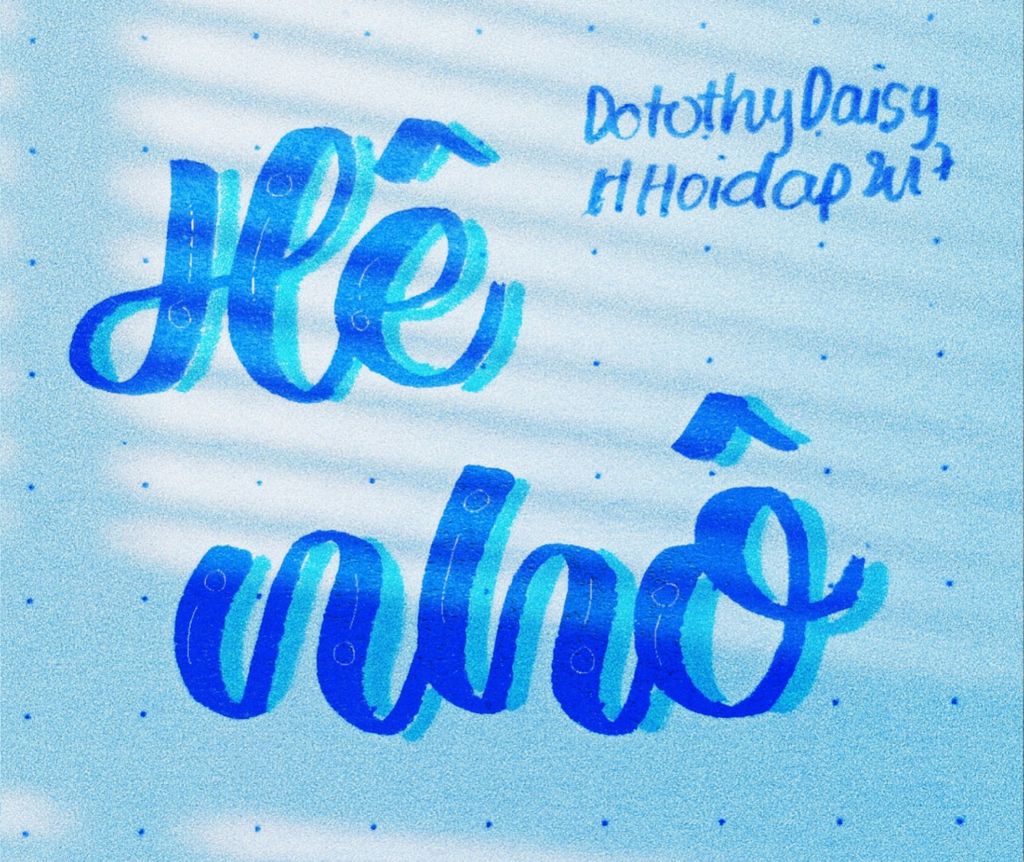 DorothyDaisy
H Hoidap 247
Hê
nhô